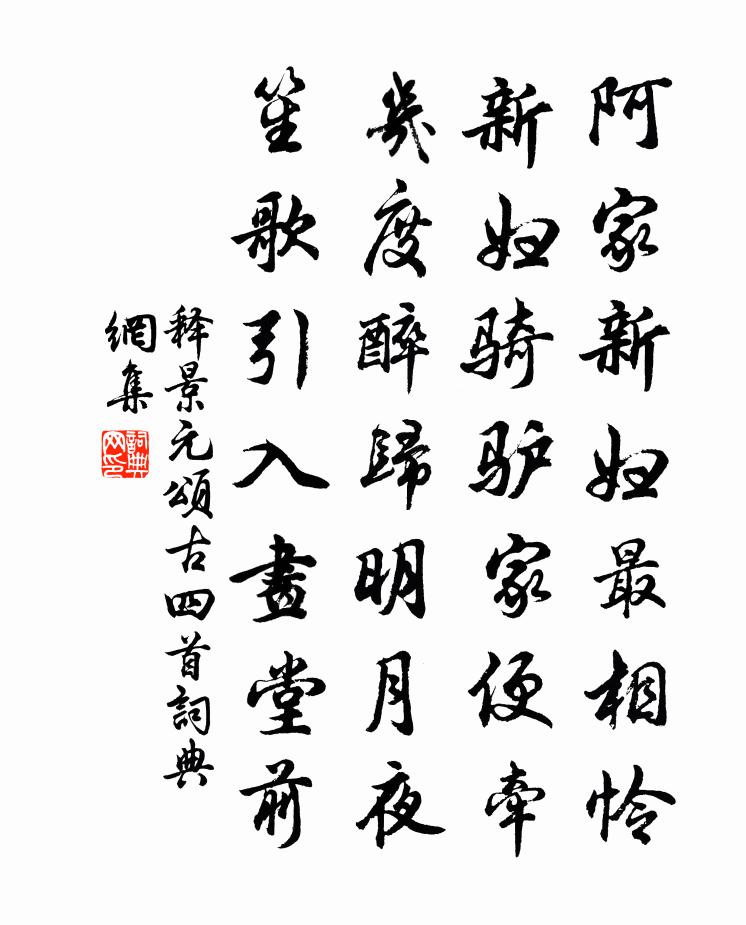 阿家新妇最相怜
新妇骑驴家便牵
幾度醉歸明月夜
笙歌引入畫堂前
释景元頌古四首詞典
網集
詞典
网印